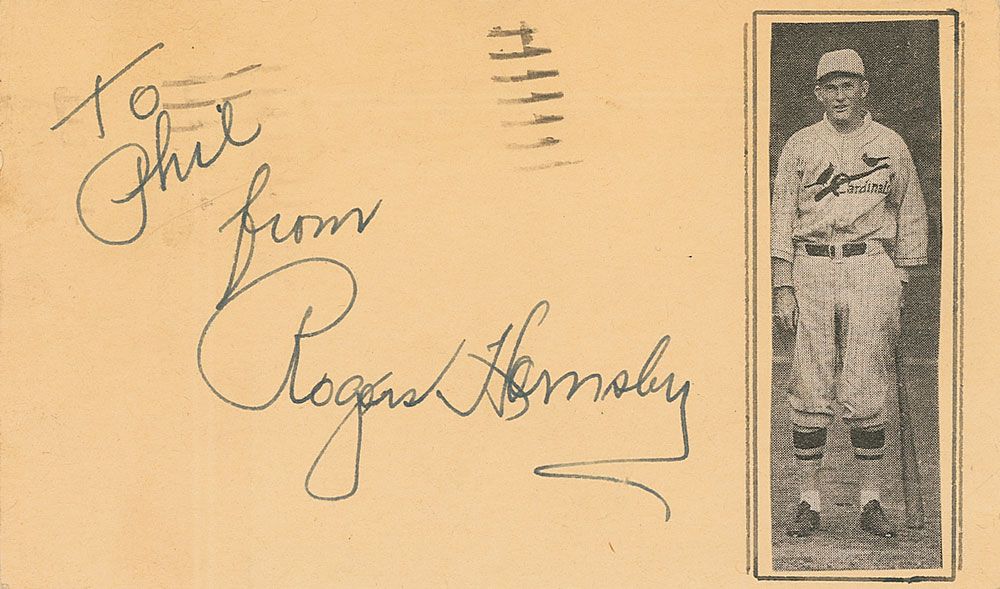 To
Phil
from
Rogers Hornsby
Cardinals